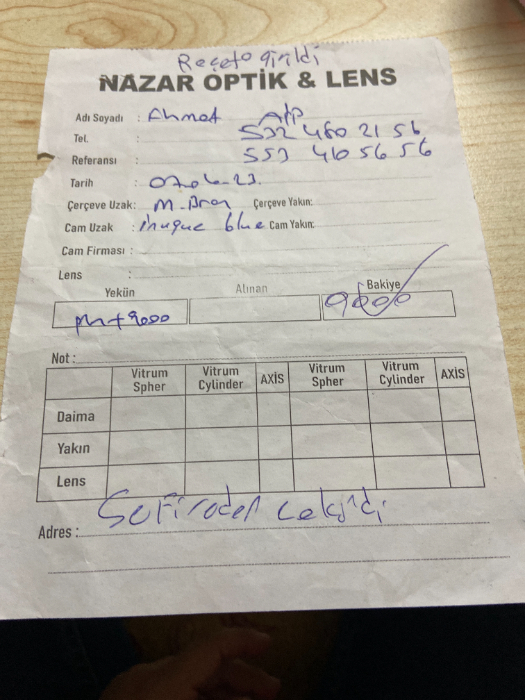 Reçete girildi
NAZAR OPTİK & LENS
Adı Soyadı : Ahmet Alp
Tel. : 532 480 21 56
Referansı : 553 465 56 56
Tarih :
Çerçeve Uzak: Çerçeve Yakın:
Cam Uzak : blue Cam Yakın:
Cam Firması :
Lens :
Yekün Alınan Bakiye
9000 9000
Not :
Vitrum Spher Vitrum Cylinder AXİS Vitrum Spher Vitrum Cylinder AXİS
Daima
Yakın
Lens
Adres :